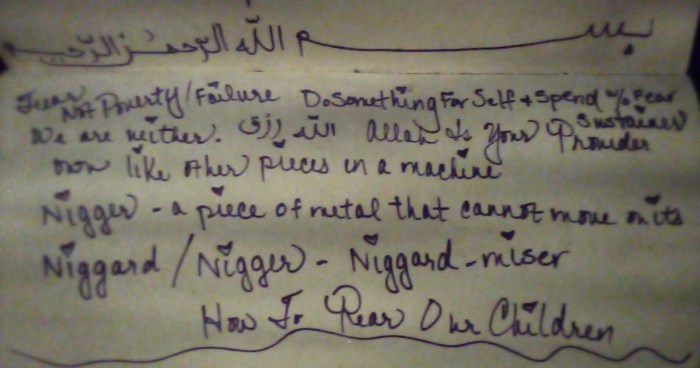 بسم الله الرحمن الرحيم
Fear Not Poverty/Failure Do Something For Self + Spend w/o Fear
We are neither. الله رزق Allah Is Your Sustainer Provider
own like other pieces in a machine
Nigger - a piece of metal that cannot move on its
Niggard / Nigger - Niggard - miser
How To Rear Our Children